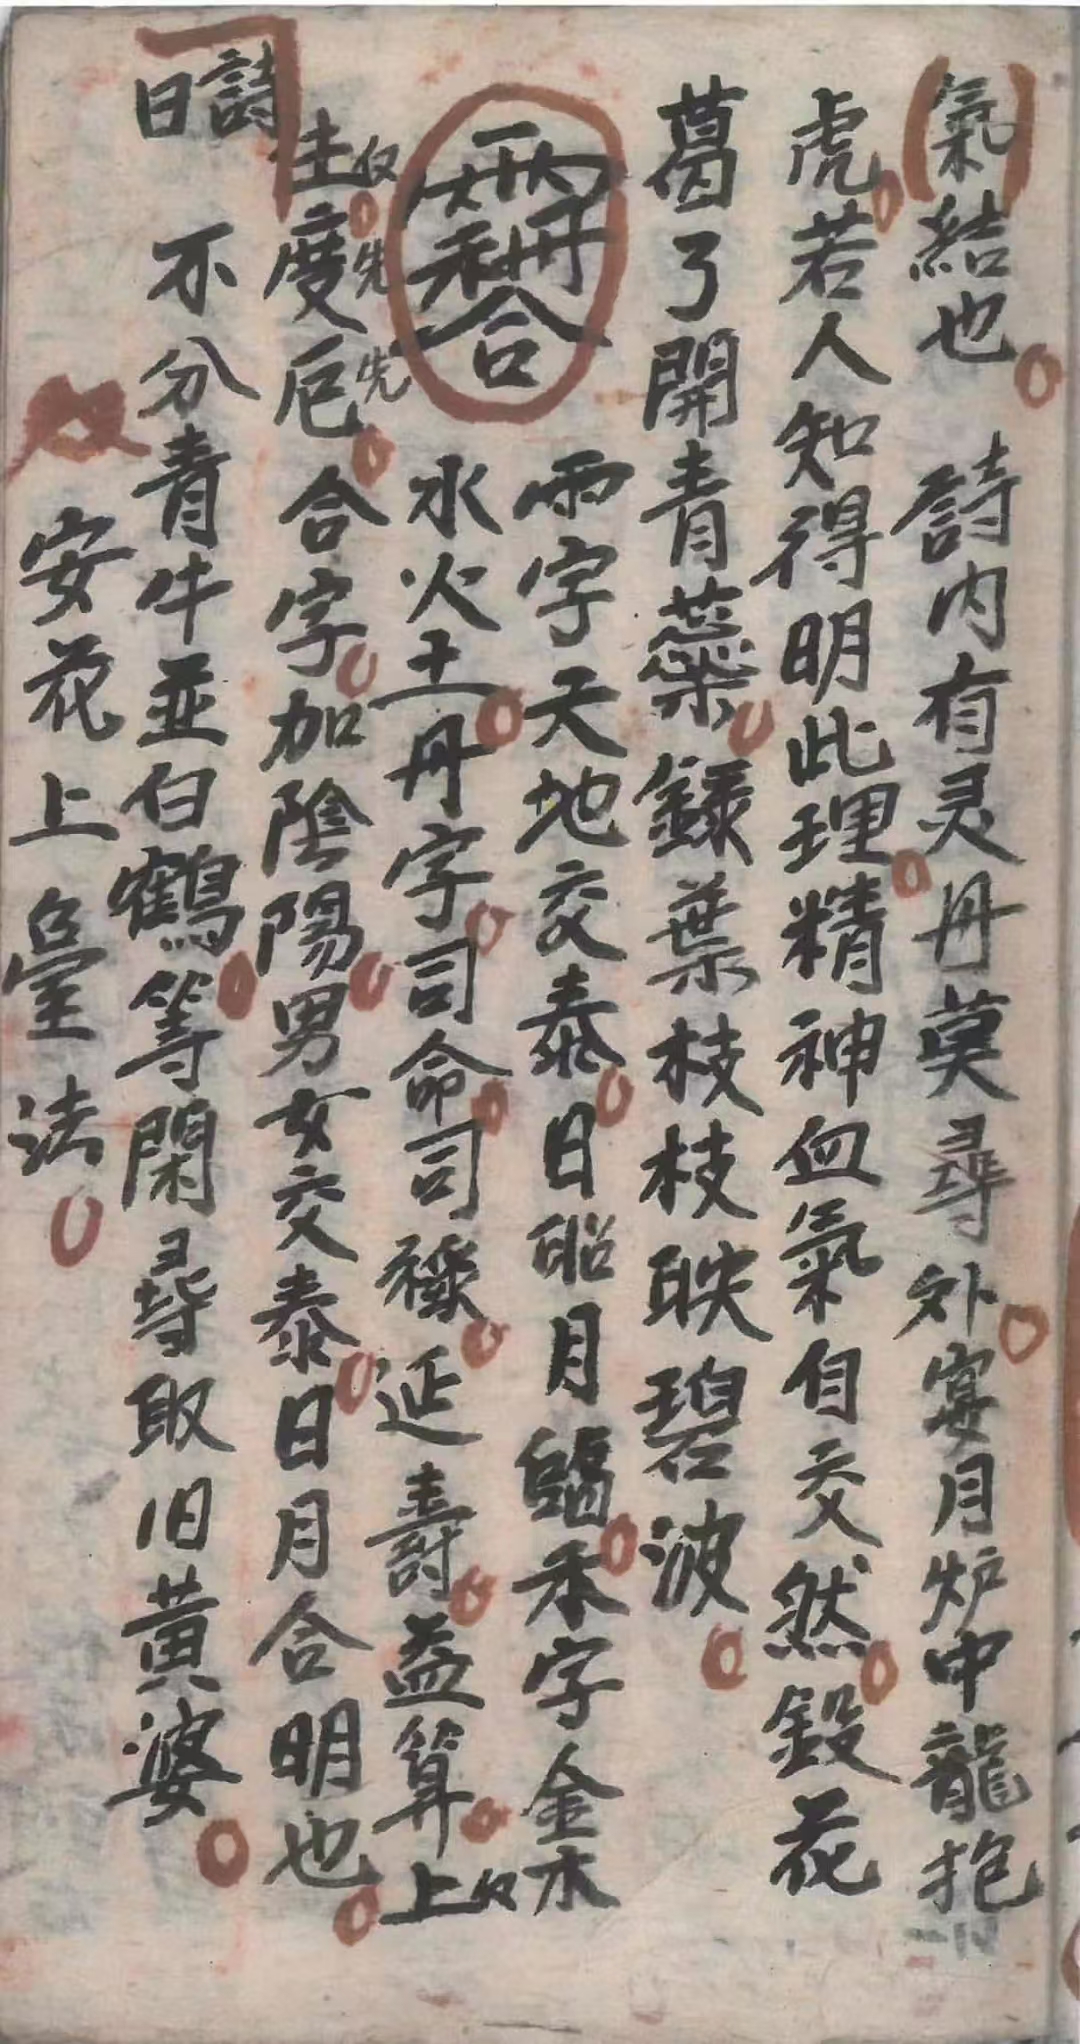 氣結也 詩內有灵丹莫尋外宴月炉中龍抱
虎若人知得明此理精神血氣自交然鈠花
葛了開青蘂録葉枝枝映碧波
雨字天地交泰日昭月臨禾字金木
水火土丹字司命司禄延壽益算上奴
主奴度先厄先合字加陰陽男女交泰日月合明也
詩曰
不分青牛並白鶴等閑尋取旧黄婆
安花上臺法